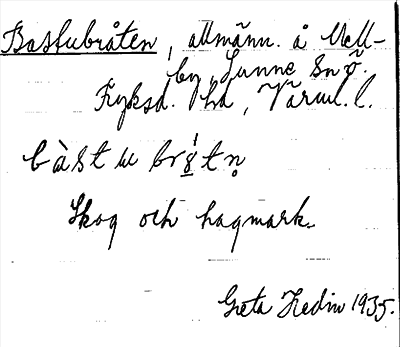 Bastubråten, allmänn. å Väll-
by Sunne sn ö.
Fryksd. hd, Värml. l.
bàstu brǻtn̥
Skog och hagmark.
Greta Hedin 1935.